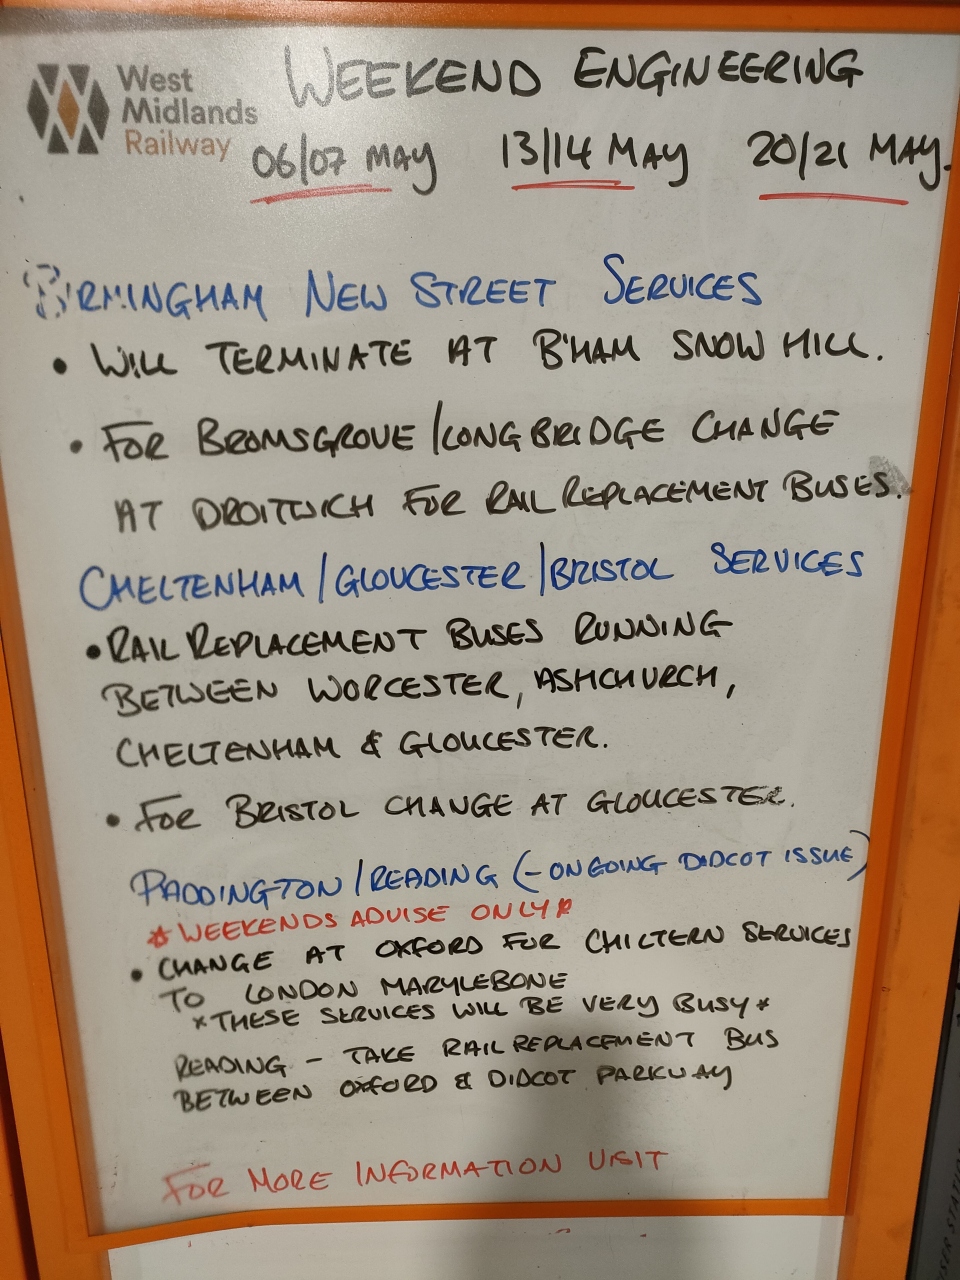 West
Midlands
Railway
WEEKEND ENGINEERING
06/07 MAY 13/14 MAY 20/21 MAY.
BIRMINGHAM NEW STREET SERVICES
• WILL TERMINATE AT B'HAM SNOW HILL.
• FOR BROMSGROVE/LONGBRIDGE CHANGE
AT DROITWICH FOR RAIL REPLACEMENT BUSES.
CHELTENHAM/GLOUCESTER/BRISTOL SERVICES
• RAIL REPLACEMENT BUSES RUNNING
BETWEEN WORCESTER, ASHCHURCH,
CHELTENHAM & GLOUCESTER.
• FOR BRISTOL CHANGE AT GLOUCESTER.
PADDINGTON/READING (- ONGOING DIDCOT ISSUE)
* WEEKENDS ADVISE ONLY *
• CHANGE AT OXFORD FOR CHILTERN SERVICES
TO LONDON MARYLEBONE
* THESE SERVICES WILL BE VERY BUSY *
READING - TAKE RAIL REPLACEMENT BUS
BETWEEN OXFORD & DIDCOT PARKWAY
FOR MORE INFORMATION VISIT